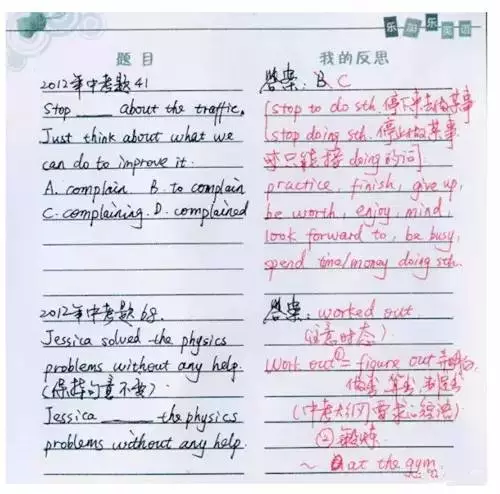 乐加乐英语
题目
2012年中考题41
Stop ____ about the traffic.
Just think about what we
can do to improve it.
A. complain B. to complain
C. complaining. D. complained
2012年中考题68.
Jessica solved the physics
problems without any help.
(保持句意不变)
Jessica ____ the physics
problems without any help.
我的反思
答案: B C
stop to do sth 停下来去做某事
stop doing sth 停止做某事
只能接doing的词
practice, finish, give up,
be worth, enjoy, mind,
look forward to, be busy,
spend time/money doing sth.
答案: worked out
(注意时态)
Work out ① = figure out
(中考大纲要求的短语)
② 锻炼
~ at the gym